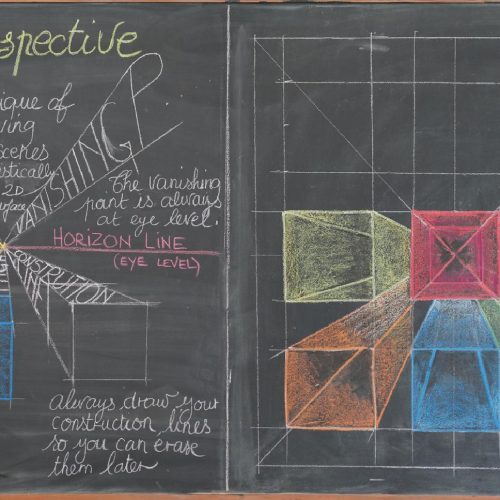 spective
ique of
ving
scenes
estically
2D
surface
VANISHING P.
The vanishing
point is always
at eye level.
HORIZON LINE
(EYE LEVEL)
CONSTRUCTION
LINE
Always draw your
construction lines
so you can erase
them later